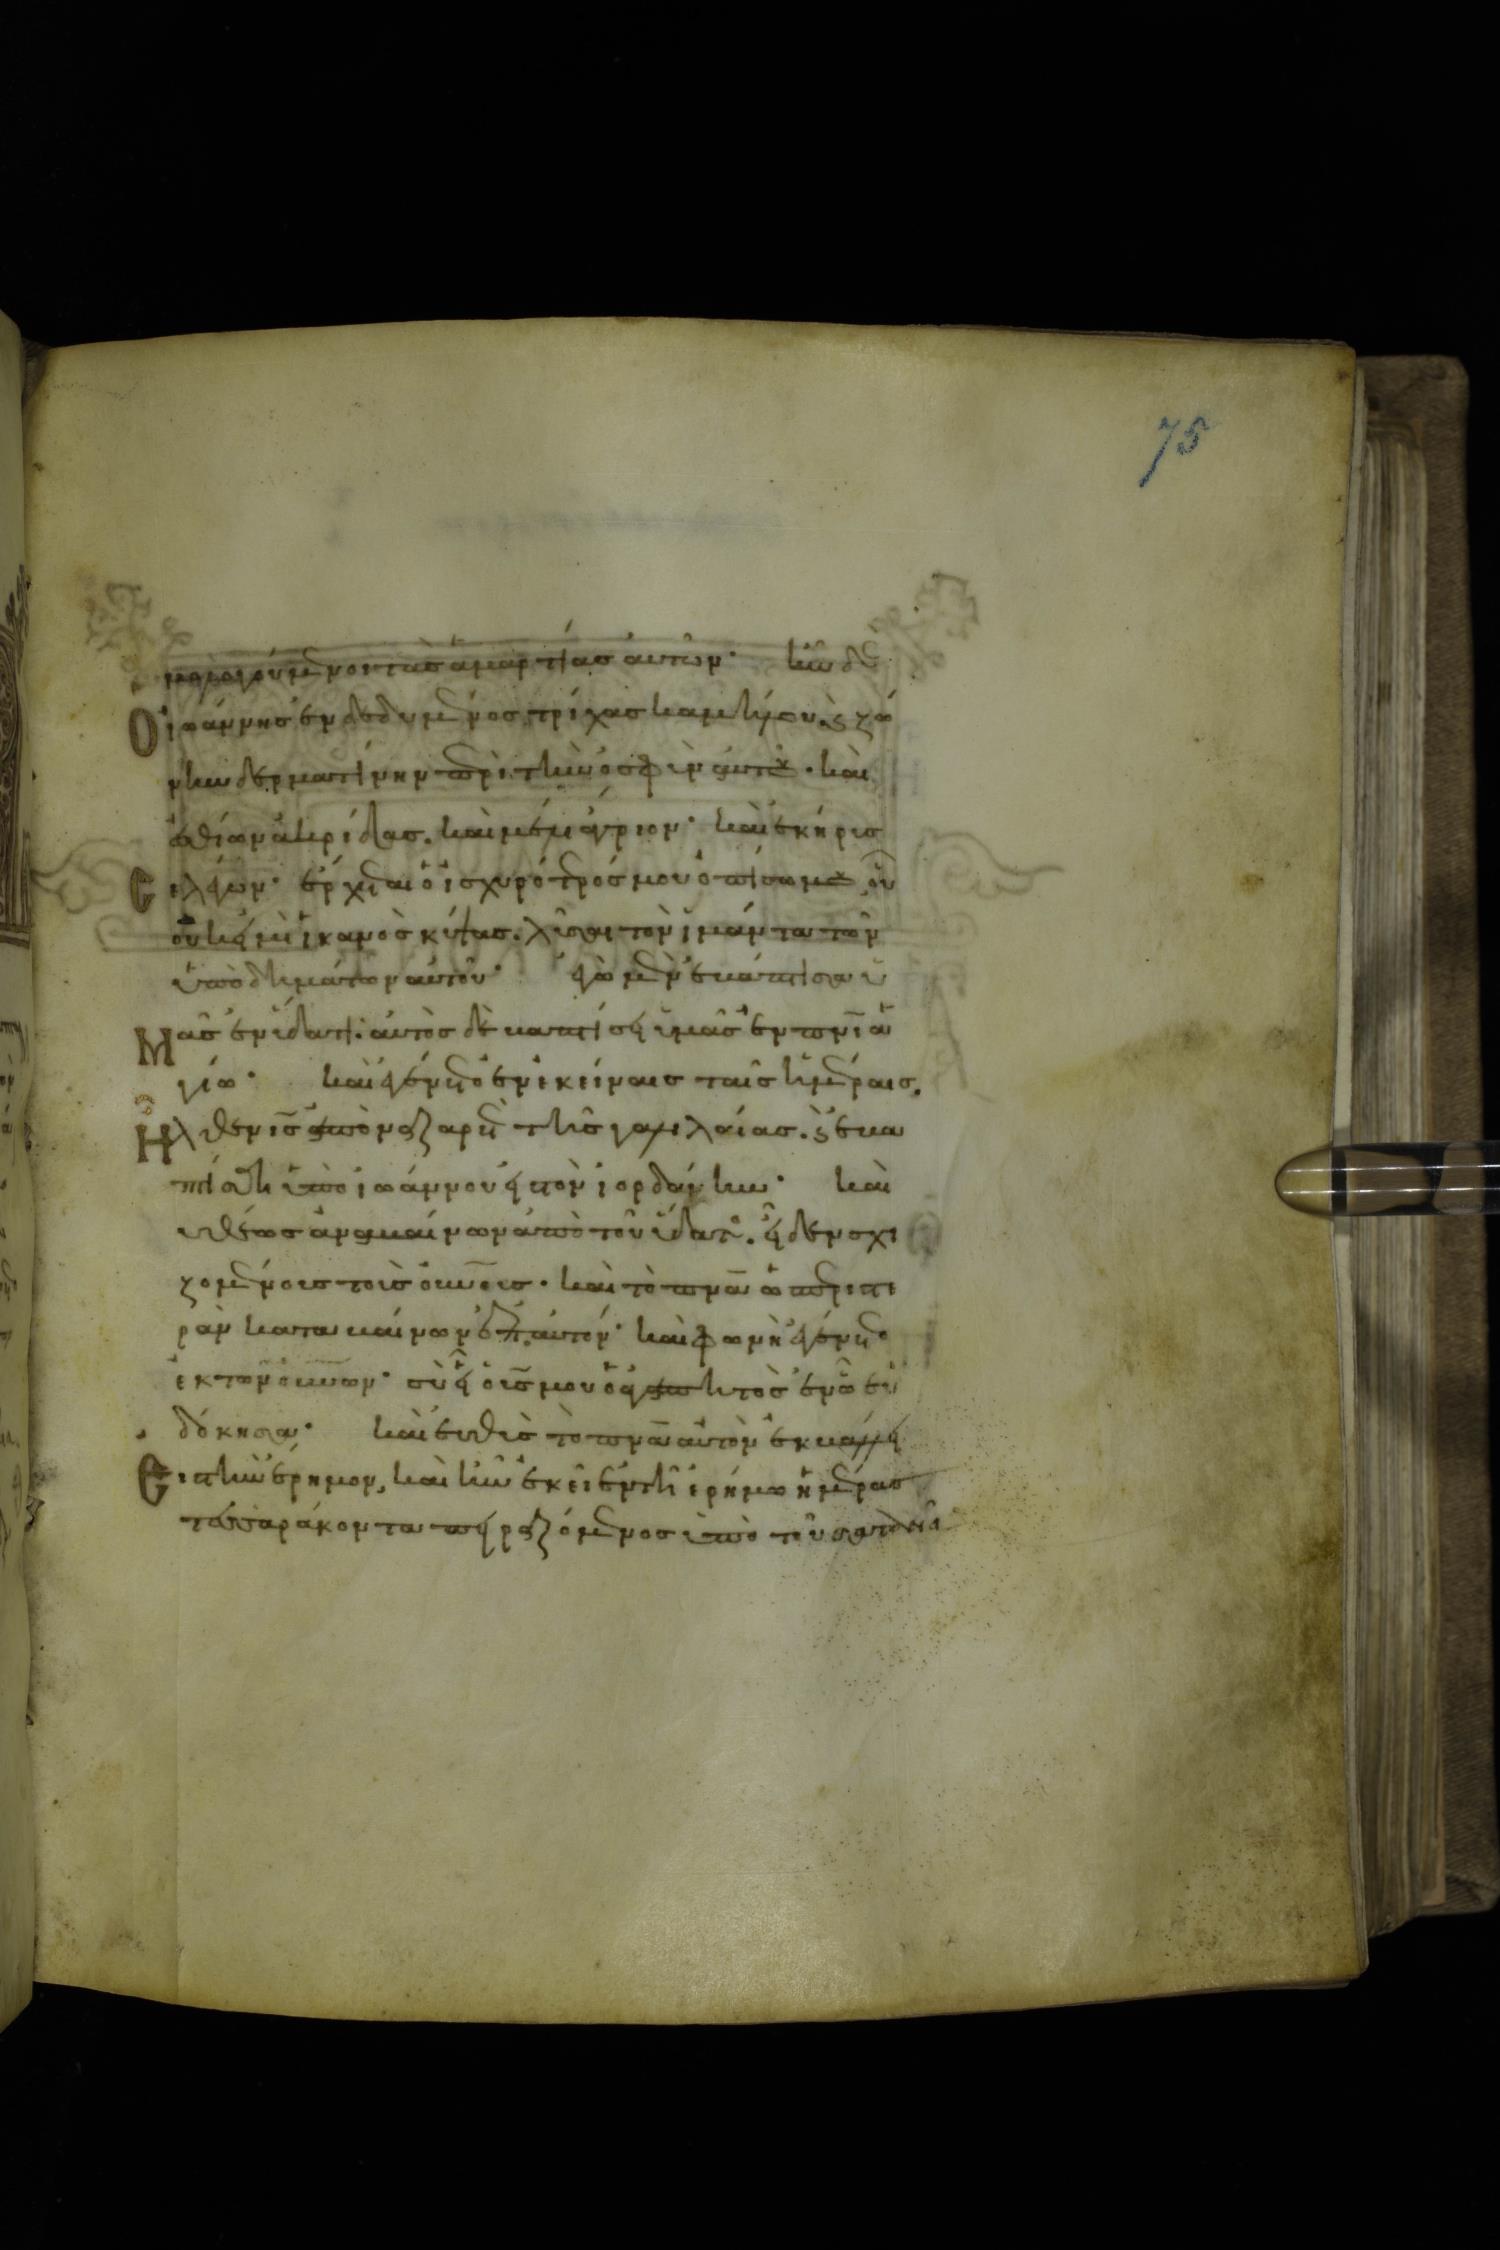 75
μολογούμενοι τὰς ἁμαρτίας αὐτῶν· ἦν δὲ
Ὁ ἰωάννης ἐνδεδυμένος τρίχας καμήλου, ϗ ζώ
νην δερματίνην περὶ τὴν ὀσφὺν αὐτοῦ· καὶ
ἐσθίων ἀκρίδας. καὶ μέλι ἄγριον· καὶ ἐκήρυσ
Ε λέγων· ἔρχεται ὁ ἰσχυρότερός μου ὀπίσω μου οὗ
οὐκ εἰμὶ ἱκανὸς κύψας. λῦσαι τὸν ἱμάντα τῶν
ὑποδημάτων αὐτοῦ· ἐγὼ μὲν ἐβάπτισα ὑ
Μ ᾶς ἐν ὕδατι· αὐτὸς δὲ βαπτίσει ὑμᾶς ἐν πνι ἁ
γίω· καὶ ἐγένετο ἐν ἐκείναις ταῖς ἡμέραις.
Ἦλθεν ις ἀπὸ ναζαρὲτ τῆς γαλιλαίας. ϗ ἐβα
πτίσθη ὑπὸ ἰωάννου εἰς τὸν ἰορδάνην· καὶ
εὐθέως ἀναβαίνων ἀπὸ τοῦ ὕδατος. εἶδεν σχι
ζομένους τοὺς οὐνους· καὶ τὸ πνα ὡς περιστε
ρὰν καταβαῖνων ἐπ' αὐτόν· καὶ φωνὴ ἐγένετο
ἐκ τῶν οὐνων· σὺ εἶ ὁ υς μου ὁ ἀγαπητὸς ἐν ὧ εὐ
δόκησα· καὶ εὐθὺς τὸ πνα αὐτὸν ἐκβάλλει
Ε ις τὴν ἔρημον, καὶ ἦν ἐκεῖ ἐν τῇ ἐρήμω ἡμέρας
τεσσαράκοντα πειραζόμενος ὑπὸ τοῦ σατανᾶ